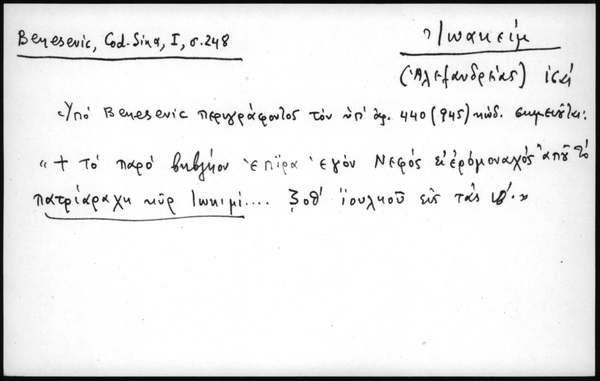 Benesevic, Cod. Sina, I, σ. 248
Ἰωακείμ
(Ἀλεξανδρείας) ις αἰ
Ὑπό Benesevic περιγράφοντος τὸν ὑπ' ἀρ. 440 (945) κώδ. σημειοῦται:
"+ Τό παρό βηβλήον ἐπῖρα ἐγόν Νεφός εἱερόμοναχός ἀποῦ τό
πατρίαραχη κῦρ Ιωκιμι.... ζοθ' ἰουλιοῦ εἰς τὰς ιθ'."